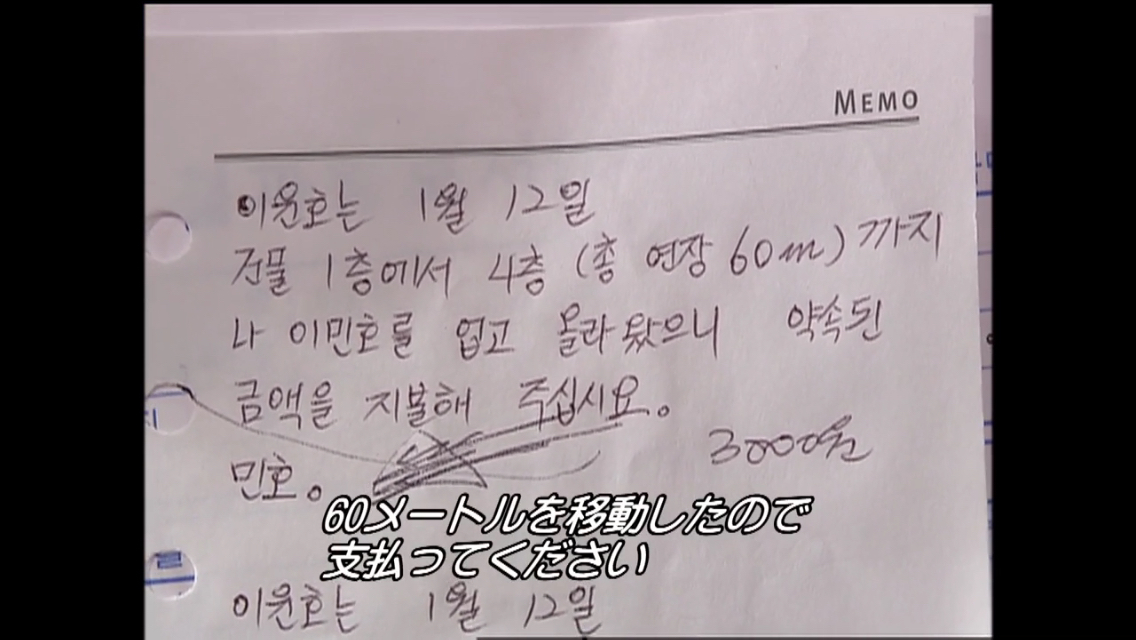 MEMO
이윤호는 1월 12일
건물 1층에서 4층 (총 연장 60m) 까지
나 이민호를 업고 올라왔으니 약속된
금액을 지불해 주십시요.
3000원
민호.
60メートルを移動したので
支払ってください
이윤호는 1월 12일